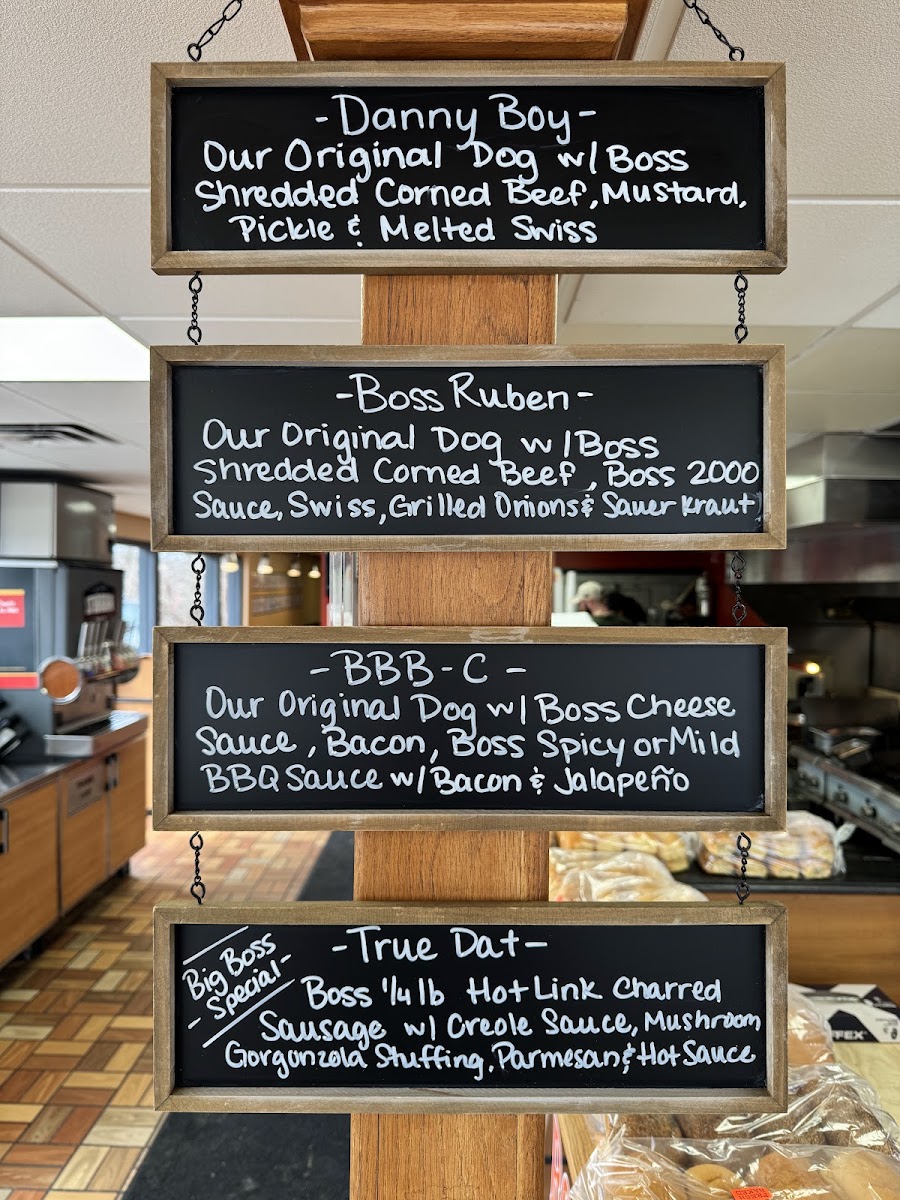 -Danny Boy-
Our Original Dog w/ Boss
Shredded Corned Beef, Mustard,
Pickle & Melted Swiss
-Boss Ruben-
Our Original Dog w/Boss
Shredded Corned Beef, Boss 2000
Sauce, Swiss, Grilled Onions & Sauer kraut
-BBB-C-
Our Original Dog w/ Boss Cheese
Sauce, Bacon, Boss Spicy or Mild
BBQ Sauce w/ Bacon & Jalapeño
Big Boss
- Special -
-True Dat-
Boss 1/4 lb Hot Link Charred
Sausage w/ Creole Sauce, Mushroom
Gorgonzola Stuffing, Parmesan & Hot Sauce